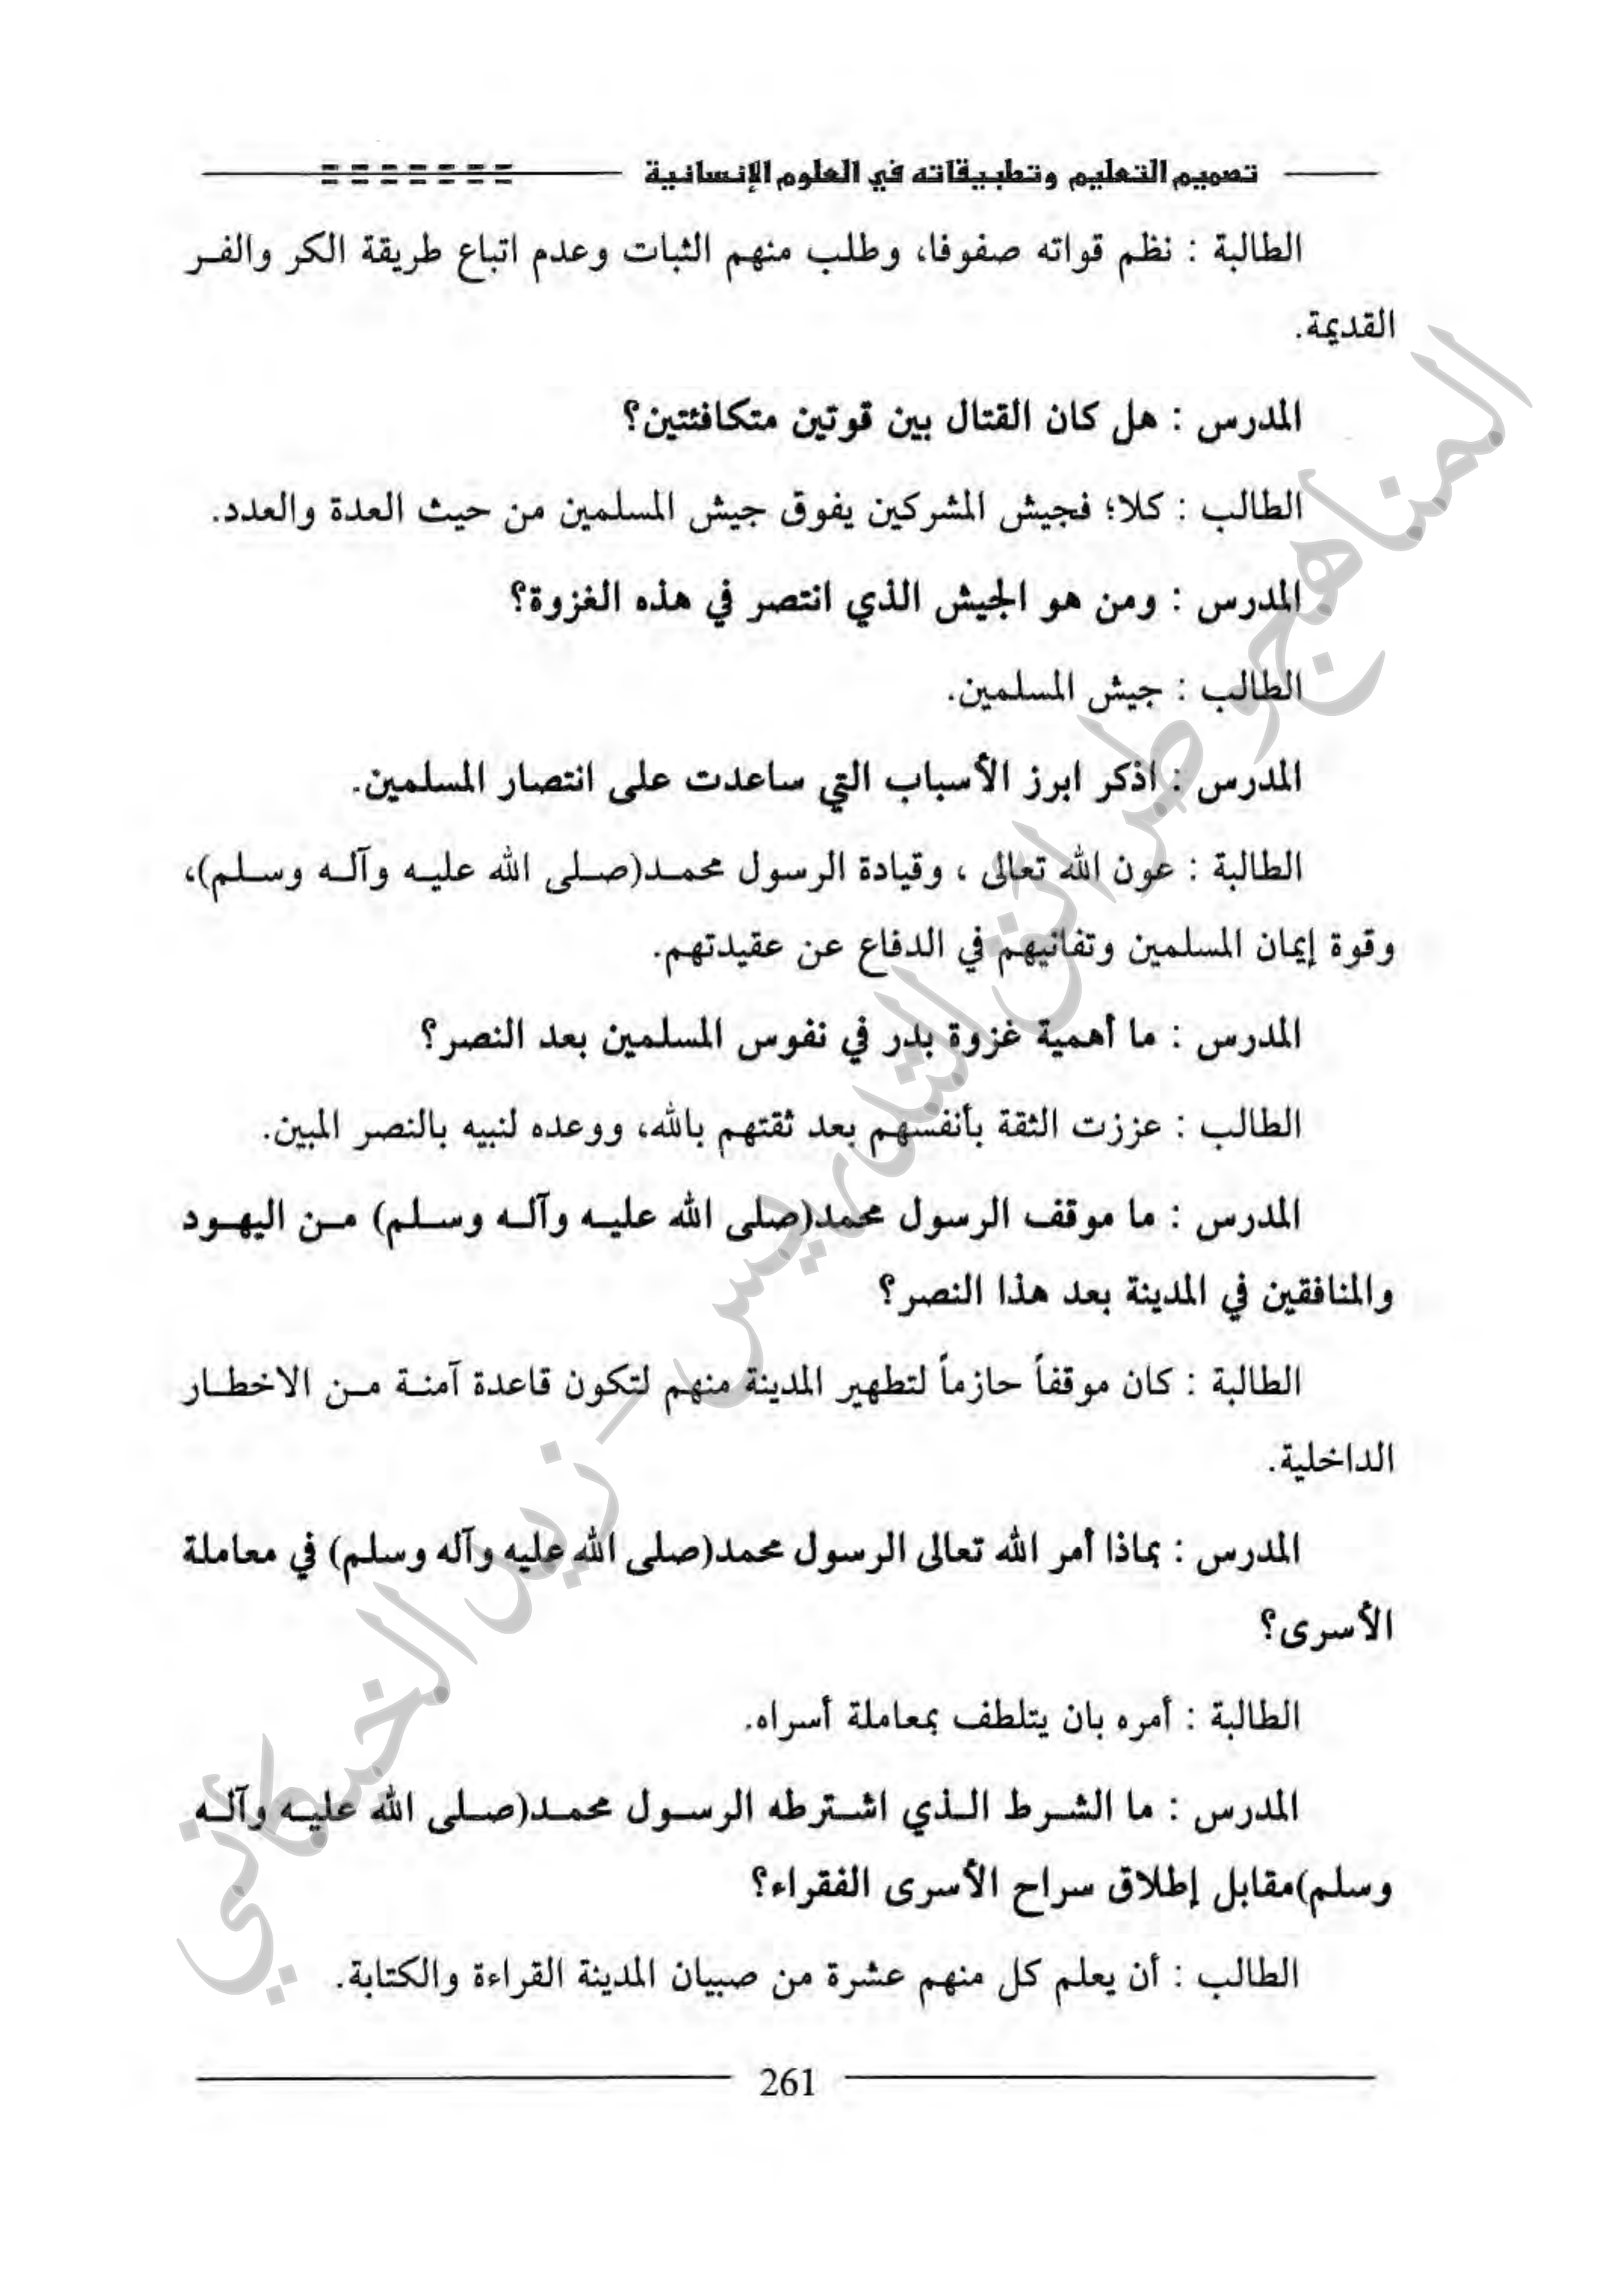 تصميم التعليم وتطبيقاته في العلوم الإنسانية
الطالبة : نظم قواته صفوفا، وطلب منهم الثبات وعدم اتباع طريقة الكر والفر
القديمة.
المدرس : هل كان القتال بين قوتين متكافئتين؟
الطالب : كلا؛ فجيش المشركين يفوق جيش المسلمين من حيث العدة والعدد.
المدرس : ومن هو الجيش الذي انتصر في هذه الغزوة؟
الطالب : جيش المسلمين.
المدرس : اذكر ابرز الأسباب التي ساعدت على انتصار المسلمين.
الطالبة : عون الله تعالى ، وقيادة الرسول محمد(صلى الله عليه وآله وسلم)،
وقوة إيمان المسلمين وتفانيهم في الدفاع عن عقيدتهم.
المدرس : ما أهمية غزوة بدر في نفوس المسلمين بعد النصر؟
الطالب : عززت الثقة بأنفسهم بعد ثقتهم بالله، ووعده لنبيه بالنصر المبين.
المدرس : ما موقف الرسول محمد(صلى الله عليه وآله وسلم) من اليهود
والمنافقين في المدينة بعد هذا النصر؟
الطالبة : كان موقفاً حازماً لتطهير المدينة منهم لتكون قاعدة آمنة من الاخطار
الداخلية.
المدرس : بماذا أمر الله تعالى الرسول محمد(صلى الله عليه وآله وسلم) في معاملة
الأسرى؟
الطالبة : أمره بان يتلطف بمعاملة أسراه.
المدرس : ما الشرط الذي اشترطه الرسول محمد(صلى الله عليه وآله
وسلم)مقابل إطلاق سراح الأسرى الفقراء؟
الطالب : أن يعلم كل منهم عشرة من صبيان المدينة القراءة والكتابة.
261
المناهج وطرائق التدريس - زيد الخيكاني